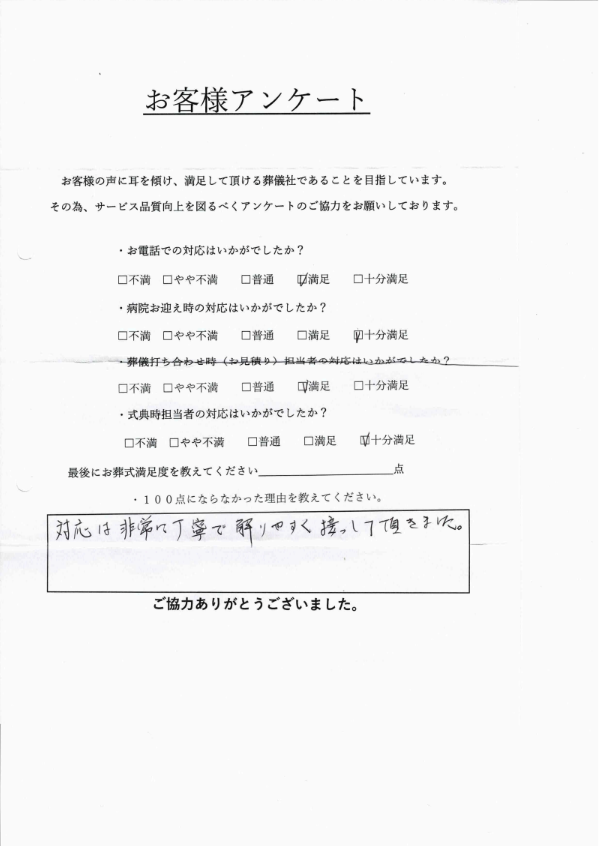 お客様アンケート
お客様の声に耳を傾け、満足して頂ける葬儀社であることを目指しています。
その為、サービス品質向上を図るべくアンケートのご協力をお願いしております。
・お電話での対応はいかがでしたか？
□不満 □やや不満 □普通 ☑満足 □十分満足
・病院お迎え時の対応はいかがでしたか？
□不満 □やや不満 □普通 □満足 ☑十分満足
・葬儀打ち合わせ時（お見積り）担当者の対応はいかがでしたか？
□不満 □やや不満 □普通 ☑満足 □十分満足
・式典時担当者の対応はいかがでしたか？
□不満 □やや不満 □普通 □満足 ☑十分満足
最後にお葬式満足度を教えてください＿＿＿＿＿＿＿＿点
・１００点にならなかった理由を教えてください。
対応は非常に丁寧で解りやすく接っして頂きました。
ご協力ありがとうございました。